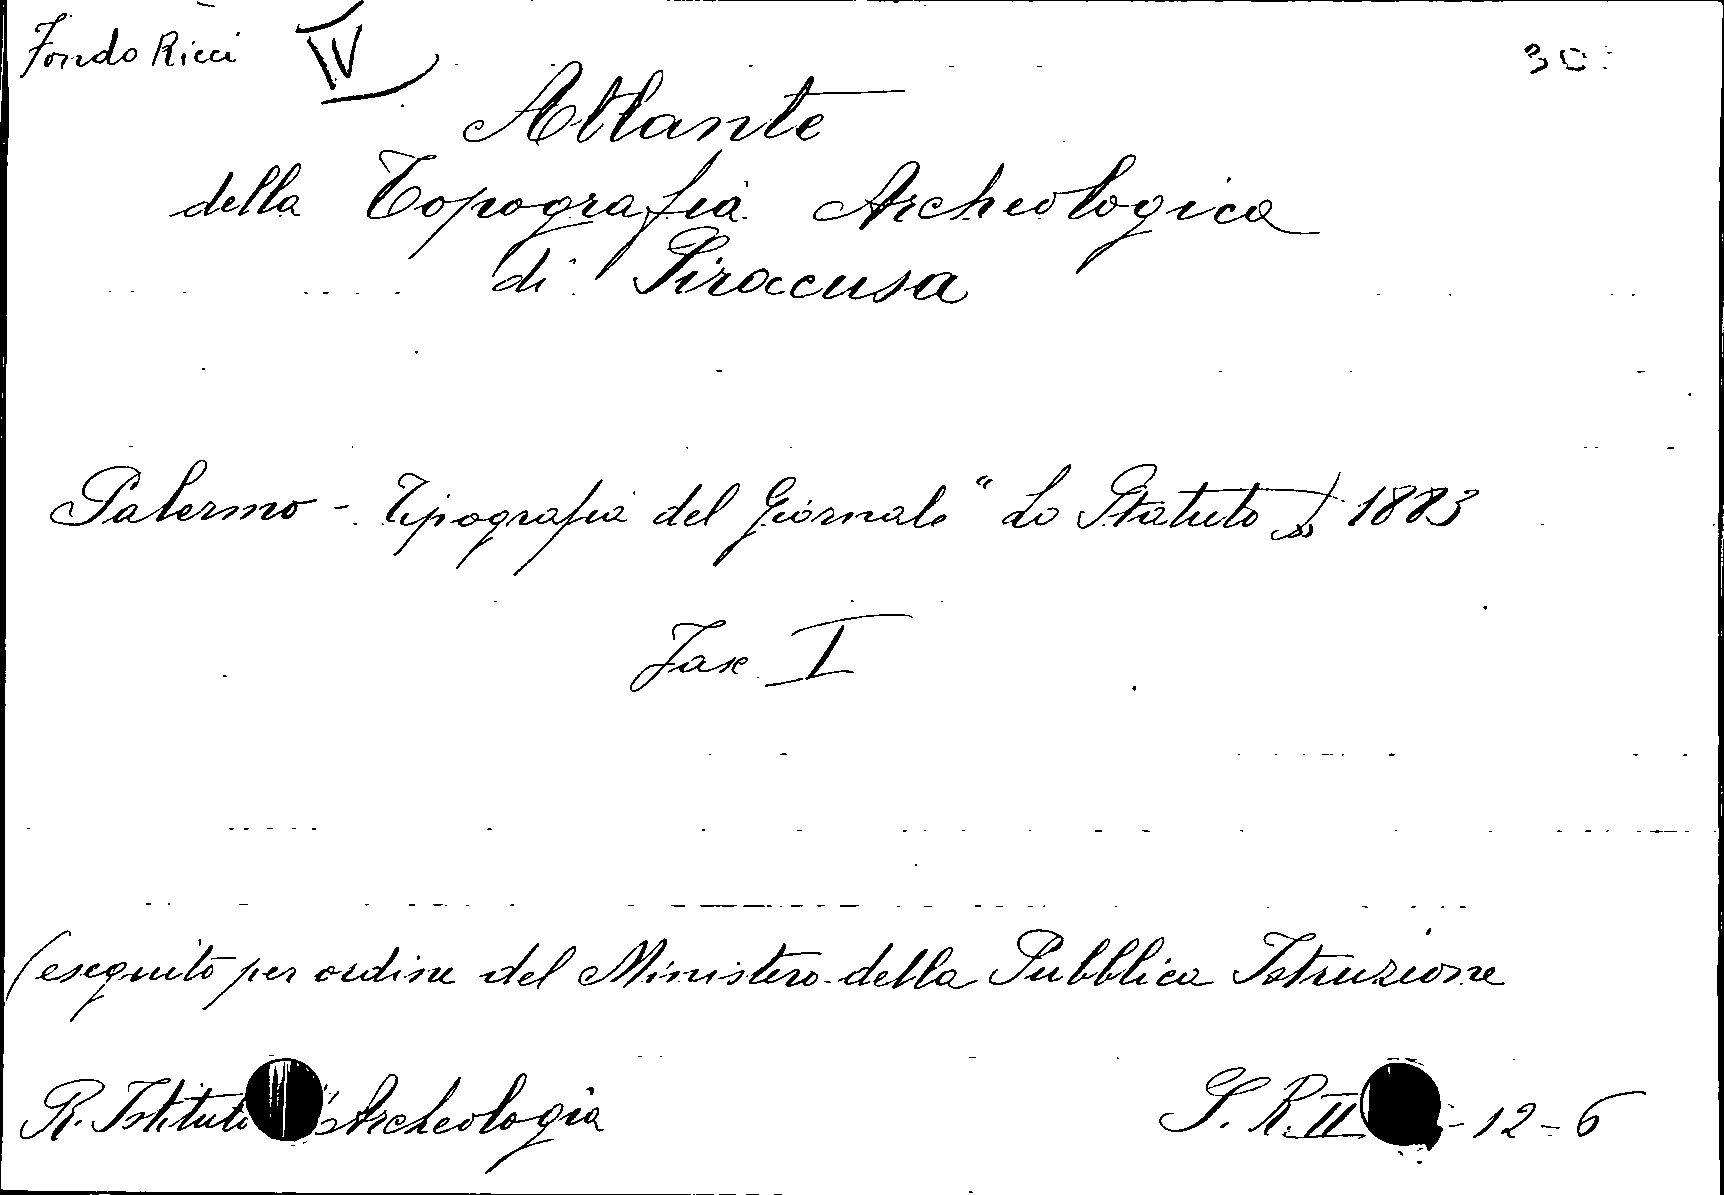 Fondo Ricci IV 30
Atlante
della Topografia Archeologica
di Siracusa
Palermo - Tipografia del Giornale "Lo Statuto" 1883
Fasc I
(eseguito per ordine del Ministero della Pubblica Istruzione
R. Istituto Archeologia S. R. II - 12 - 6